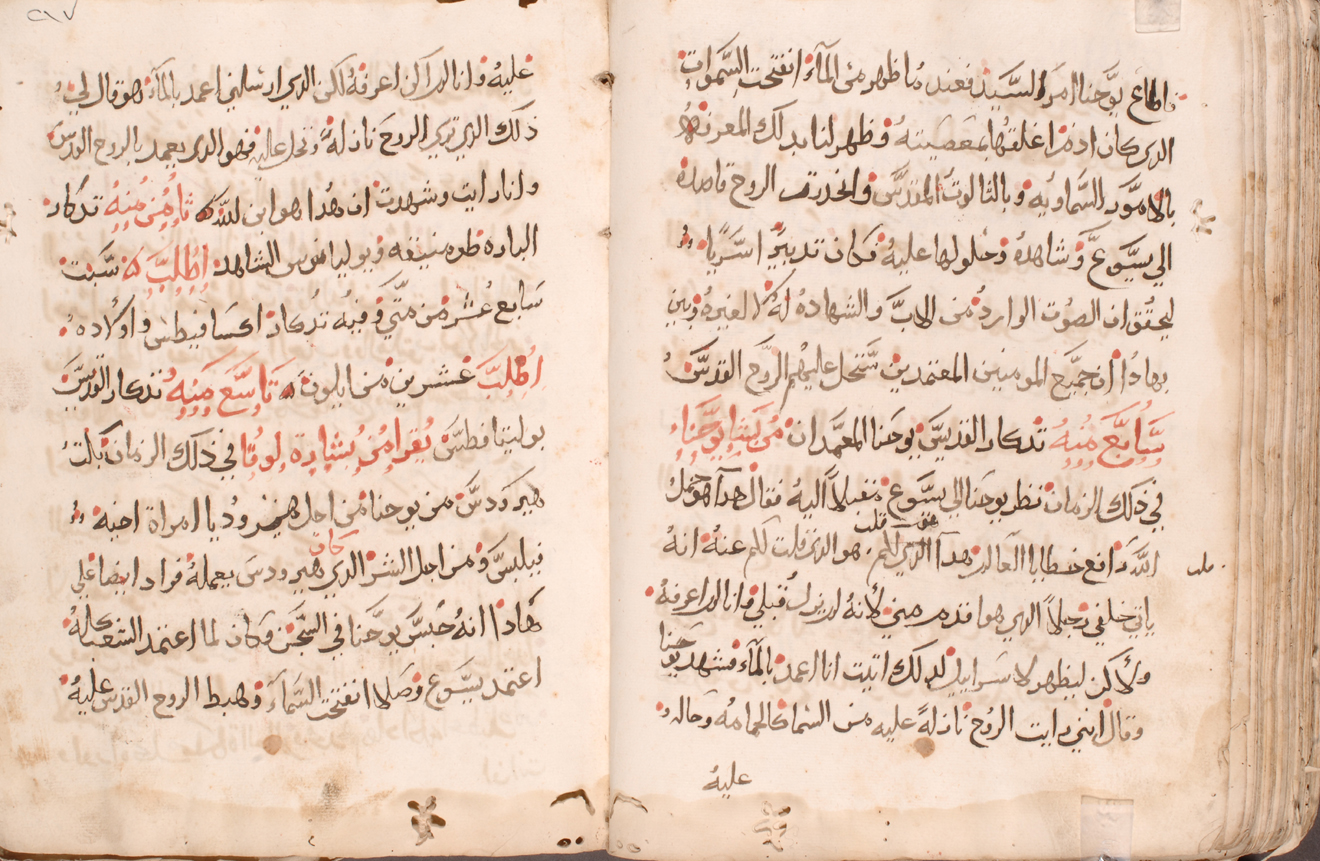 فاطاع يوحنا امر السيد فعند ما ظهر من المآء انفتحت السموات
الدي كان ادم اغلقها بمعصيته وظهر لنا بدلك المعرفه
بالامور السماويه وبالثالوت المقدس وانحدرت الروح قاصده
الي يسوع وشاهده وحلولها عليه فكان تدبير اسريا
ليحقق ان الصوت الوارد من الاب والشهاده له لا لغيره وتبين
بهادا ان جميع المومنين المعتمدين ستحل عليهم الروح القدس
سابع منه تدكار القديس يوحنا المعمدان من بشا يوحنا
في ذلك الزمان نظر يوحنا الي يسوع مقبلاً اليه فقال هدا هو حمل
الله رافع خطايا العالم هدا الدي هو الدي قلت لكم عنه انه
ياتي خلفي رجلاً الدي هو اقدم مني لانه لم يزل قبلي وانا لم اعرفه
ولاكن ليظهر لاسراييل لدلك اتيت انا اعمد بالمآء فشهد يوحنا
وقال انني رايت الروح نازلةً عليه من السما كالحمامه وحاله
عليه
٩٧
عليه وانا لم اكن اعرفه لكن الدي ارسلني اعمد بالمآء هو قال لي
ذلك الدي تري الروح نازله وتحل عليه فهو الدي يعمد بالروح القدس
وانا رايت وشهدت ان هدا هو ابن الله ثامن منه تدكار
الباره ظومنيقه ويوليانوس الشاهد اطلب سبت
سابع عشر من متي وفيه تدكار اكسانفيطس واولاده
اطلب عشرين من ايلون تاسع منه تدكار القديس
بوليافطس يقرا من بشارة لوقا في ذلك الزمان بكت
هيرودس من يوحنا من اجل هيروديا امراة اخيه
فيلبس ومن اجل الشر الدي كان هيرودس يعمله فزاد ايضا علي
هادا انه حبس يوحنا في السجن وكان لما اعتمد الشعب كله
اعتمد يسوع وصلا انفتحت السمآء وهبط الروح القدس عليه